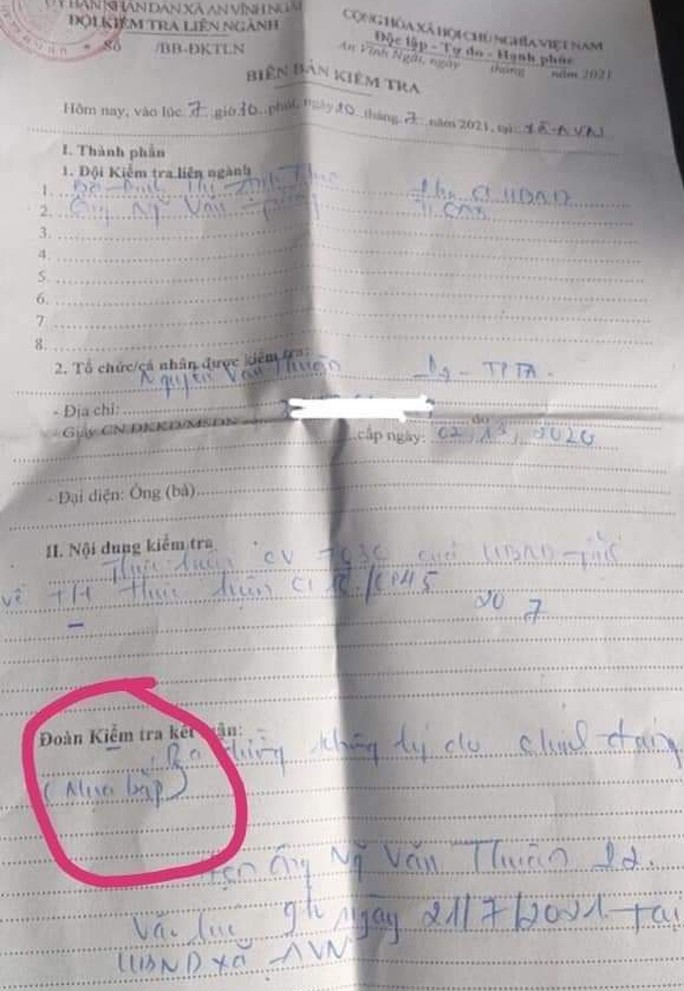 ỦY BAN NHÂN DÂN XÃ AN VĨNH NGÃI
ĐỘI KIỂM TRA LIÊN NGÀNH
Số /BB-ĐKTLN
CỘNG HÒA XÃ HỘI CHỦ NGHĨA VIỆT NAM
Độc lập - Tự do - Hạnh phúc
An Vĩnh Ngãi, ngày tháng năm 2021
BIÊN BẢN KIỂM TRA
Hôm nay, vào lúc 7 giờ 30 phút, ngày 20 tháng 7 năm 2021, tại: xã AVN
I. Thành phần
1. Đội Kiểm tra liên ngành
1. Bà Đinh Thị UBND
2. Ông Ng Văn CAX
3.
4.
5.
6.
7.
8.
2. Tổ chức/cá nhân được kiểm tra:
Nguyễn Văn Thuận - TPTA.
- Địa chỉ:
- Giấy CN ĐKKD/MSDN do
cấp ngày: 2020
- Đại diện: Ông (bà)
II. Nội dung kiểm tra
CV của UBND tỉnh
về thực hiện CT
20 7
Đoàn Kiểm tra kết luận:
Ra đường không lý do chính đáng
(Mua bắp)
Hẹn ông Ng Văn Thuận
Vào lúc 9h ngày 21/7/2021 tại
UBND xã AVN